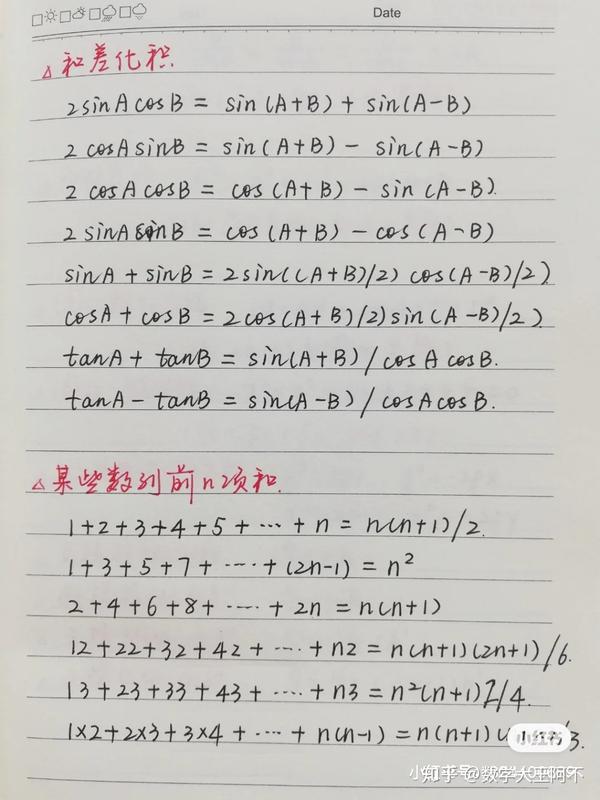 Date
△和差化积
2sinAcosB = sin(A+B) + sin(A-B)
2cosAsinB = sin(A+B) - sin(A-B)
2cosAcosB = cos(A+B) - sin(A-B).
2sinAsinB = cos(A+B) - cos(A-B)
sinA + sinB = 2sin((A+B)/2) cos(A-B)/2)
cosA + cosB = 2cos(A+B)/2)sin(A-B)/2)
tanA + tanB = sin(A+B) / cosAcosB.
tanA - tanB = sin(A-B) / cosAcosB.
△某些数列前n项和.
1+2+3+4+5+…+n = n(n+1)/2.
1+3+5+7+…+(2n-1) = n²
2+4+6+8+…+2n = n(n+1)
12+22+32+42+…+n2 = n(n+1)(2n+1)/6.
13+23+33+43+…+n3 = n²(n+1)2/4.
1×2+2×3+3×4+…+n(n-1) = n(n+1)
小红书
知乎 @数学大王阿不